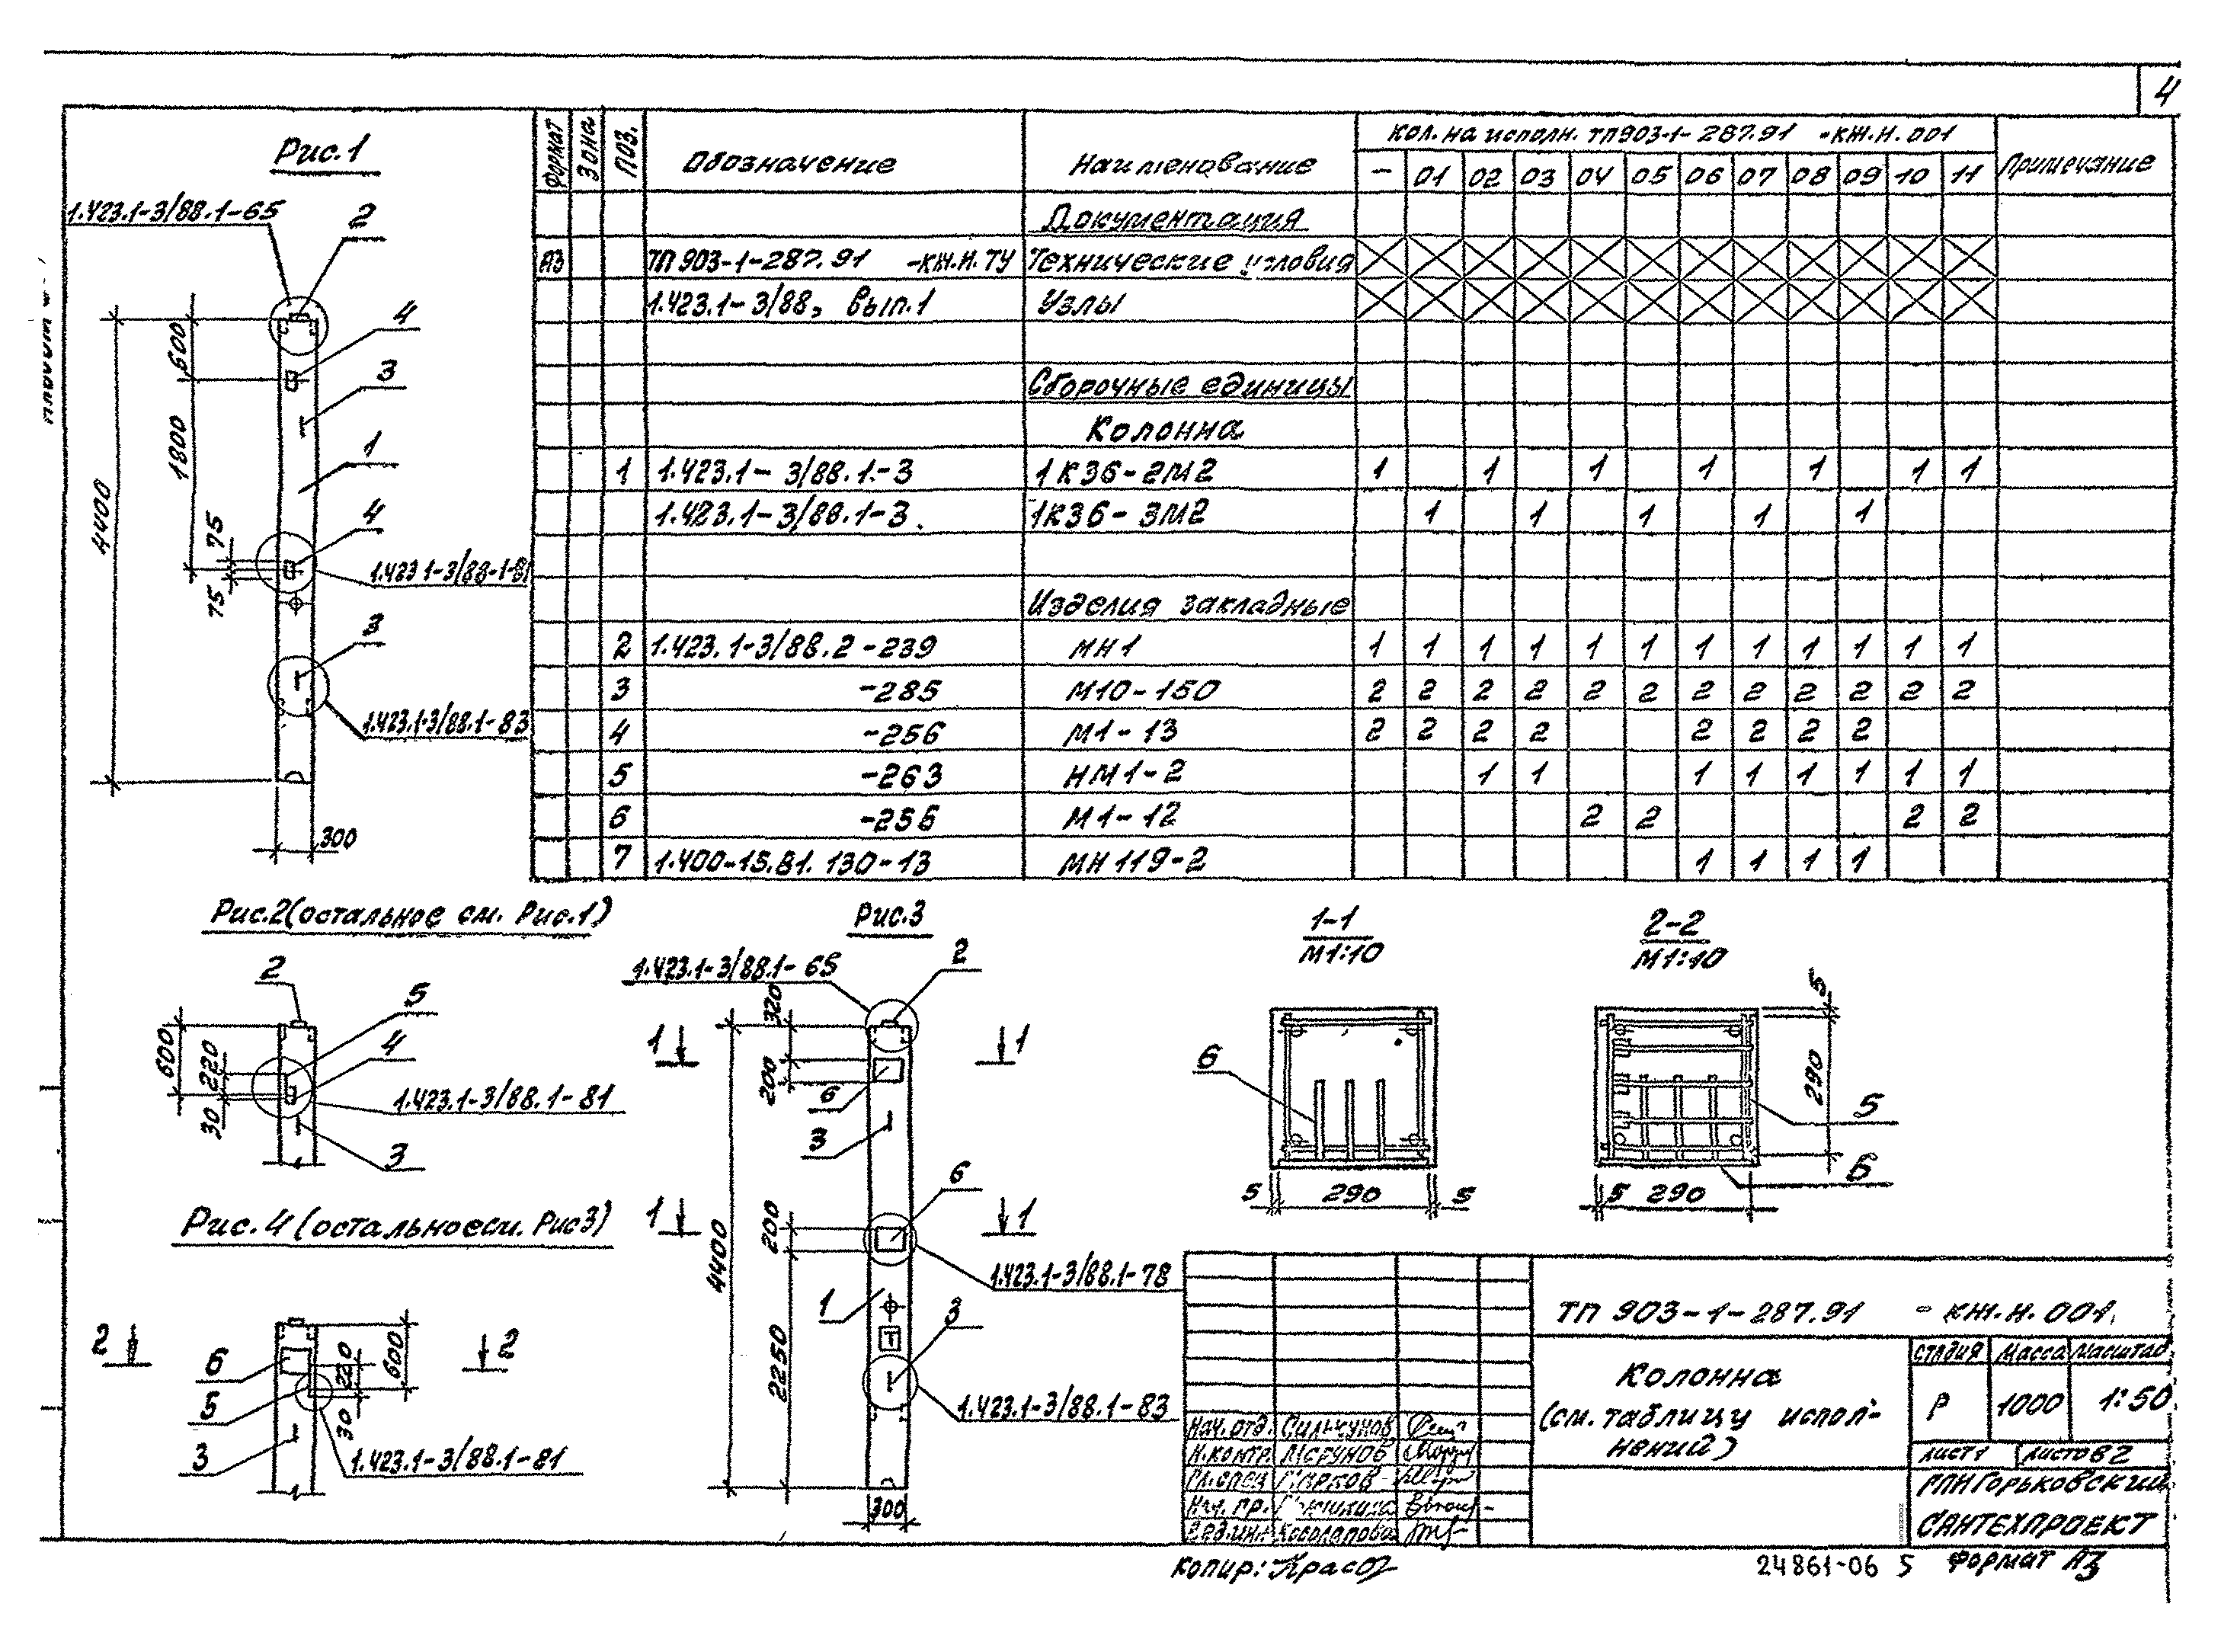 4
Рис.1
1.423.1-3/88.1-65
2
4
3
1
4
1.423 1-3/88-1-81
3
1.423.1-3/88.1-83
600
1800
4400
75
75
300
Формат Зона Поз. Обозначение Наименование Кол. на исполн. ТП903-1-287.91 -КЖ.И.001 Примечание
- 01 02 03 04 05 06 07 08 09 10 11
Документация
А3 ТП 903-1-287.91 -КЖ.И.ТУ Технические условия
1.423.1-3/88, вып.1 Узлы
Сборочные единицы
Колонна
1 1.423.1-3/88.1-3 1К36-2М2 1 1 1 1 1 1 1
1.423.1-3/88.1-3. 1К36-3М2 1 1 1 1 1
Изделия закладные
2 1.423.1-3/88.2-239 МН1 1 1 1 1 1 1 1 1 1 1 1 1
3 -285 М10-150 2 2 2 2 2 2 2 2 2 2 2 2
4 -256 М1-13 2 2 2 2 2 2 2 2
5 -263 НМ1-2 1 1 1 1 1 1 1 1
6 -256 М1-12 2 2 2 2
7 1.400-15.В1.130-13 МН119-2 1 1 1 1
Рис.2(остальное см. Рис.1)
2
5
4
1.423.1-3/88.1-81
3
600
220
30
Рис.4(остальноесм. Рис3)
2 2
6
5
3
220
600
30
1.423.1-3/88.1-81
Рис.3
1.423.1-3/88.1-65
2
320
200
1 1
6
3
6
1 1
200
4400
1.423.1-3/88.1-78
1
3
2250
1.423.1-3/88.1-83
300
1-1
М1:10
6
5 290 5
2-2
М1:10
5
290
5
6
5 290
ТП 903-1-287.91 -КЖ.И.001
Колонна
(см. таблицу испол-
нений)
Стадия Масса Масштаб
Р 1000 1:50
Лист 1 Листов 2
ГПИ Горьковский
Сантехпроект
Нач.отд.
Н.контр.
Гл.спец
Нач.гр.
Вед.инж. Косолапова
Копир:
24861-06 5 Формат А3